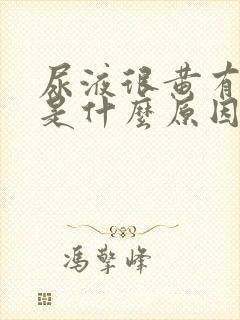 尿液很黄有
是什麼原因
馮擎峰